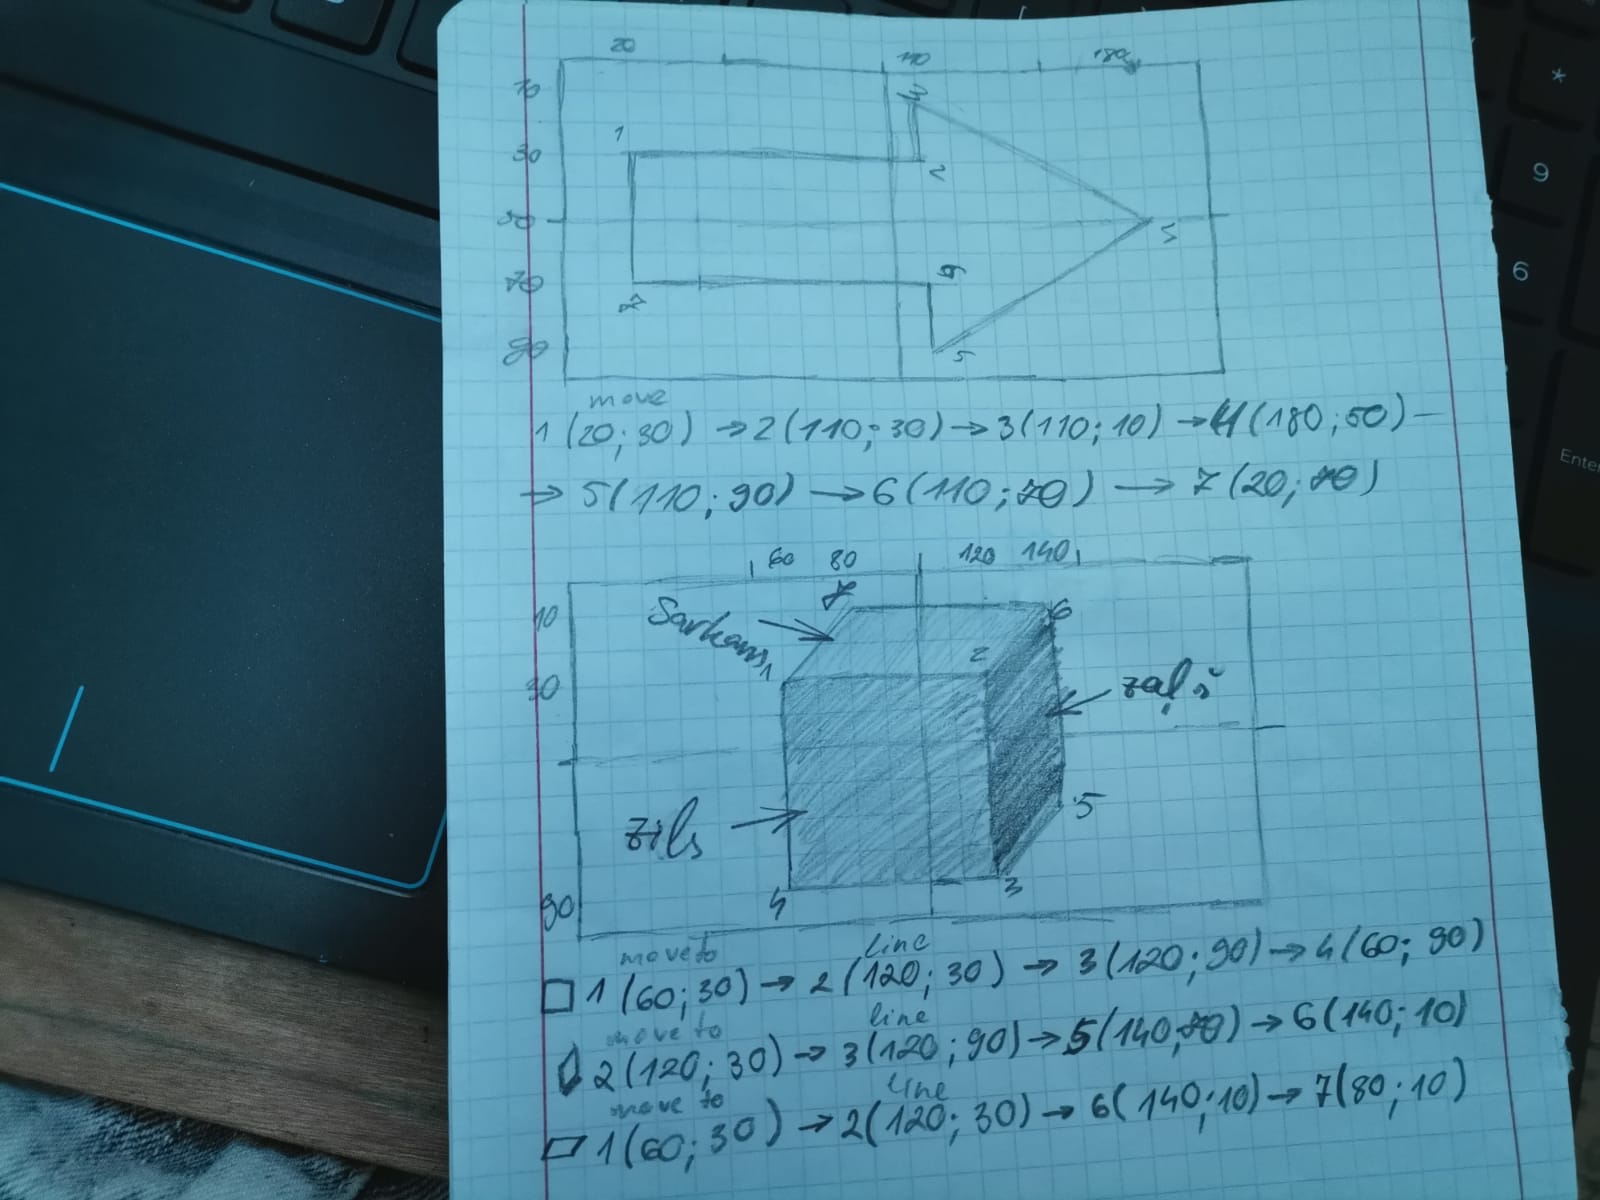 20 110 180
10
3
1
30
2
50
4
70
6
7
90
5
move
1 (20; 30) → 2 (110; 30) → 3 (110; 10) → 4 (180; 50) —
→ 5 (110; 90) → 6 (110; 70) → 7 (20; 70)
60 80 120 140
7
10
6
Sarkans
2
1
30
zaļš
5
zils
3
4
90
moveto line
1 (60; 30) → 2 (120; 30) → 3 (120; 90) → 4 (60; 90)
move to line
2 (120; 30) → 3 (120; 90) → 5 (140; 70) → 6 (140; 10)
move to line
1 (60; 30) → 2 (120; 30) → 6 (140; 10) → 7 (80; 10)
*
9
6
Enter